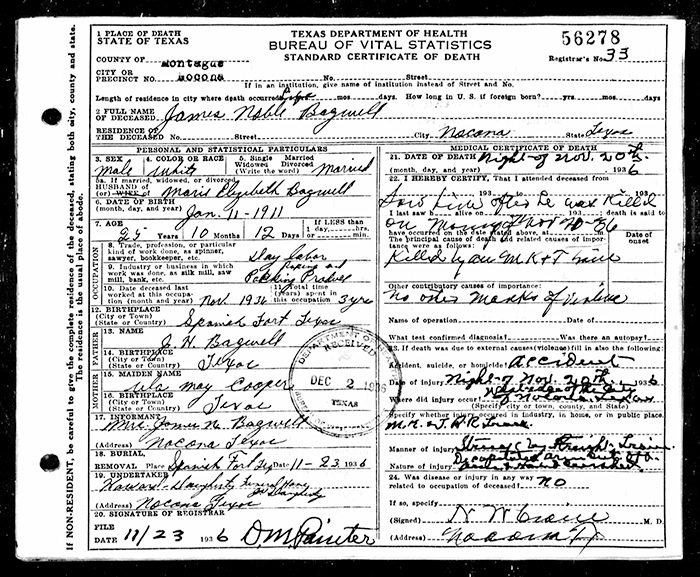 1 PLACE OF DEATH
STATE OF TEXAS
TEXAS DEPARTMENT OF HEALTH
BUREAU OF VITAL STATISTICS
STANDARD CERTIFICATE OF DEATH
56278
Registrar's No. 33
COUNTY OF Montague
CITY OR PRECINCT NO. Nocona No. Street
If in an institution, give name of institution instead of Street and No.
Length of residence in city where death occurred yrs. mos. days. How long in U. S. if foreign born? yrs. mos. days.
2 FULL NAME OF DECEASED James Noble Bagwell
RESIDENCE OF THE DECEASED No. Street City Nocona State Texas
PERSONAL AND STATISTICAL PARTICULARS
3. SEX Male
4. COLOR OR RACE White
5. Single Married Widowed Divorced (Write the word) Married
5a. If married, widowed, or divorced, HUSBAND OF (or) WIFE OF Marie Elizabeth Bagwell
6. DATE OF BIRTH (month, day, and year) Jan. 11-1911
7. AGE 25 Years 10 Months 12 Days If LESS than 1 day, hrs. min.
OCCUPATION
8. Trade, profession, or particular kind of work done, as spinner, sawyer, bookkeeper, etc. Day labor
9. Industry or business in which work was done, as silk mill, saw mill, bank, etc.
10. Date deceased last worked at this occupation (month and year) Nov 1936
11. Total time (years) spent in this occupation 3 yrs
12. BIRTHPLACE (City or Town) (State or Country) Spanish Fort Texas
FATHER
13. NAME J. H. Bagwell
14. BIRTHPLACE (City or Town) (State or Country) Texas
MOTHER
15. MAIDEN NAME Lula May Cooper
16. BIRTHPLACE (City or Town) (State or Country) Texas
17. INFORMANT Mrs. James N. Bagwell
(Address) Nocona Texas
18. BURIAL, REMOVAL Place Spanish Fort Tex Date 11-23 1936
19. UNDERTAKER Daugherty Funeral Home
(Address) Nocona Texas
20. SIGNATURE OF REGISTRAR
FILE DATE 11/23 1936 D.M. Painter
MEDICAL CERTIFICATE OF DEATH
21. DATE OF DEATH (month, day, and year) Night of Nov. 20th 1936
22. I HEREBY CERTIFY, That I attended deceased from
193 to 193
Saw him after he was Killed
I last saw h alive on 193 death is said to have occurred on the date stated above, at m.
The principal cause of death and related causes of importance were as follows:
Date of onset
Killed by an M K & T Train
Other contributory causes of importance:
No other marks of violence
Name of operation Date of
What test confirmed diagnosis? Was there an autopsy?
23. If death was due to external causes (violence) fill in also the following:
Accident, suicide, or homicide? Accident
Date of injury Night of Nov. 20th 1936
Where did injury occur?
(Specify city or town, county and State)
Specify whether injury occurred in industry, in home, or in public place.
M.K. & T. R R Track
Manner of injury Struck by Freight Train
Nature of injury
24. Was disease or injury in any way related to occupation of deceased? No
If so, specify
(Signed) M. D.
(Address) Nocona Tex
DEPARTMENT OF HEALTH
RECEIVED
DEC 2 1936
TEXAS
If NON-RESIDENT, be careful to give the complete residence of the deceased, stating both city, county and state.
The residence is the usual place of abode.